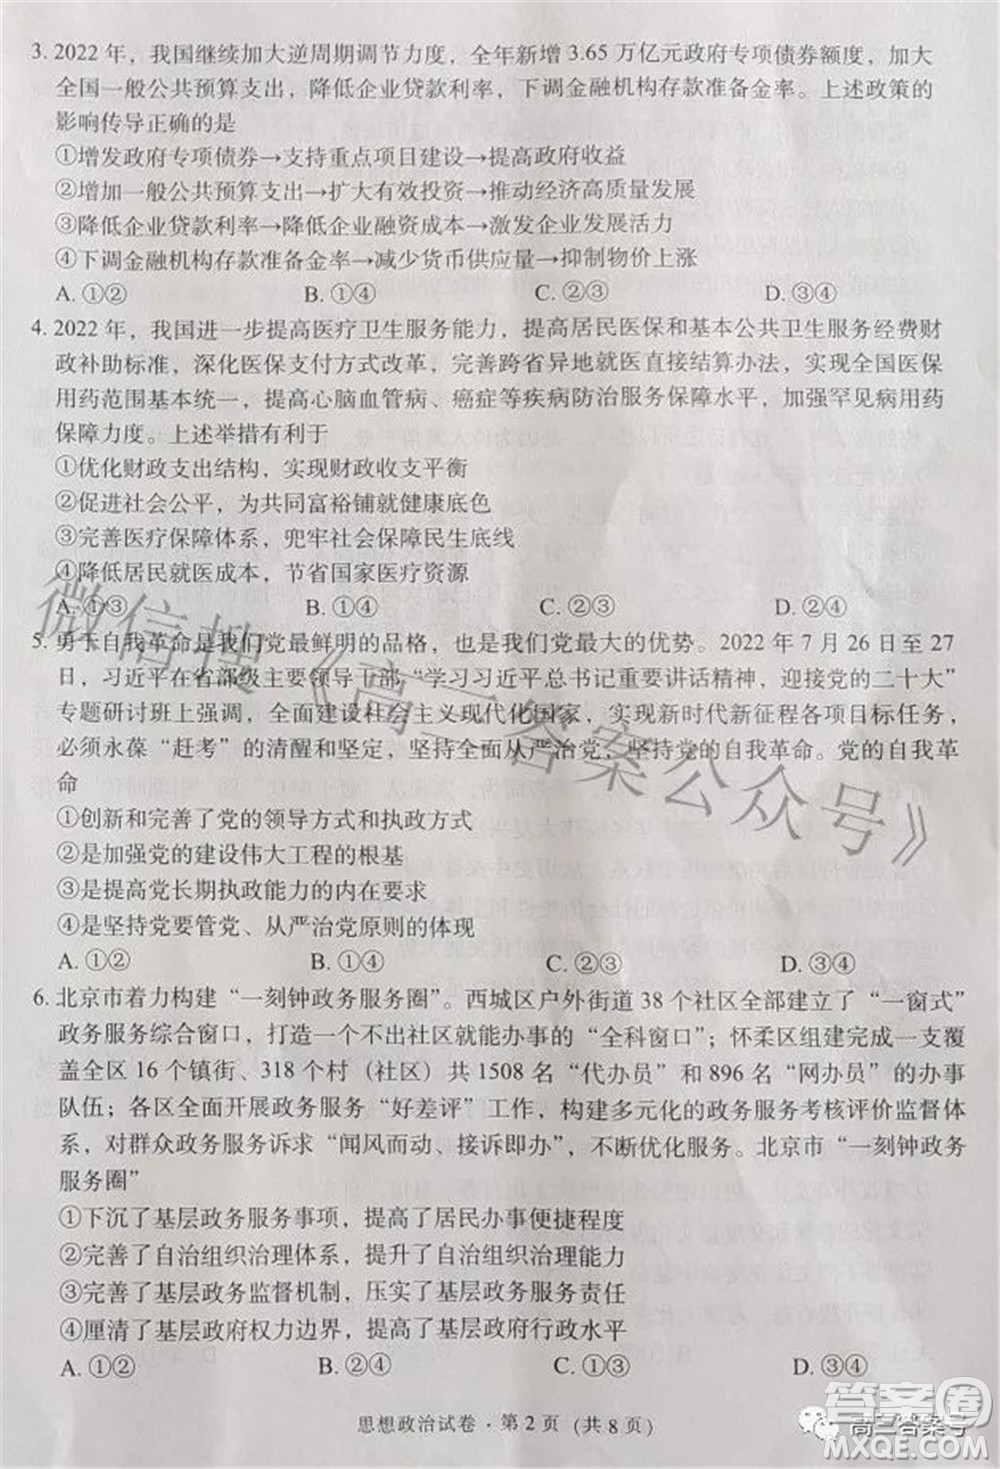 3. 2022 年，我国继续加大逆周期调节力度，全年新增 3.65 万亿元政府专项债券额度，加大
全国一般公共预算支出，降低企业贷款利率，下调金融机构存款准备金率。上述政策的
影响传导正确的是
①增发政府专项债券→支持重点项目建设→提高政府收益
②增加一般公共预算支出→扩大有效投资→推动经济高质量发展
③降低企业贷款利率→降低企业融资成本→激发企业发展活力
④下调金融机构存款准备金率→减少货币供应量→抑制物价上涨
A. ①② B. ①④ C. ②③ D. ③④
4. 2022 年，我国进一步提高医疗卫生服务能力，提高居民医保和基本公共卫生服务经费财
政补助标准，深化医保支付方式改革，完善跨省异地就医直接结算办法，实现全国医保
用药范围基本统一，提高心脑血管病、癌症等疾病防治服务保障水平，加强罕见病用药
保障力度。上述举措有利于
①优化财政支出结构，实现财政收支平衡
②促进社会公平，为共同富裕铺就健康底色
③完善医疗保障体系，兜牢社会保障民生底线
④降低居民就医成本，节省国家医疗资源
A. ①③ B. ①④ C. ②③ D. ②④
5. 勇于自我革命是我们党最鲜明的品格，也是我们党最大的优势。2022 年 7 月 26 日至 27
日，习近平在省部级主要领导干部“学习习近平总书记重要讲话精神，迎接党的二十大”
专题研讨班上强调，全面建设社会主义现代化国家，实现新时代新征程各项目标任务，
必须永葆“赶考”的清醒和坚定，坚持全面从严治党，坚持党的自我革命。党的自我革
命
①创新和完善了党的领导方式和执政方式
②是加强党的建设伟大工程的根基
③是提高党长期执政能力的内在要求
④是坚持党要管党、从严治党原则的体现
A. ①② B. ①④ C. ②③ D. ③④
6. 北京市着力构建“一刻钟政务服务圈”。西城区户外街道 38 个社区全部建立了“一窗式”
政务服务综合窗口，打造一个不出社区就能办事的“全科窗口”；怀柔区组建完成一支覆
盖全区 16 个镇街、318 个村（社区）共 1508 名“代办员”和 896 名“网办员”的办事
队伍；各区全面开展政务服务“好差评”工作，构建多元化的政务服务考核评价监督体
系，对群众政务服务诉求“闻风而动、接诉即办”，不断优化服务。北京市“一刻钟政务
服务圈”
①下沉了基层政务服务事项，提高了居民办事便捷程度
②完善了自治组织治理体系，提升了自治组织治理能力
③完善了基层政务监督机制，压实了基层政务服务责任
④厘清了基层政府权力边界，提高了基层政府行政水平
A. ①② B. ②④ C. ①③ D. ③④
思想政治试卷·第 2 页（共 8 页）
微信搜《高三答案公众号》
高三答案号
答案圈
MXQE.COM